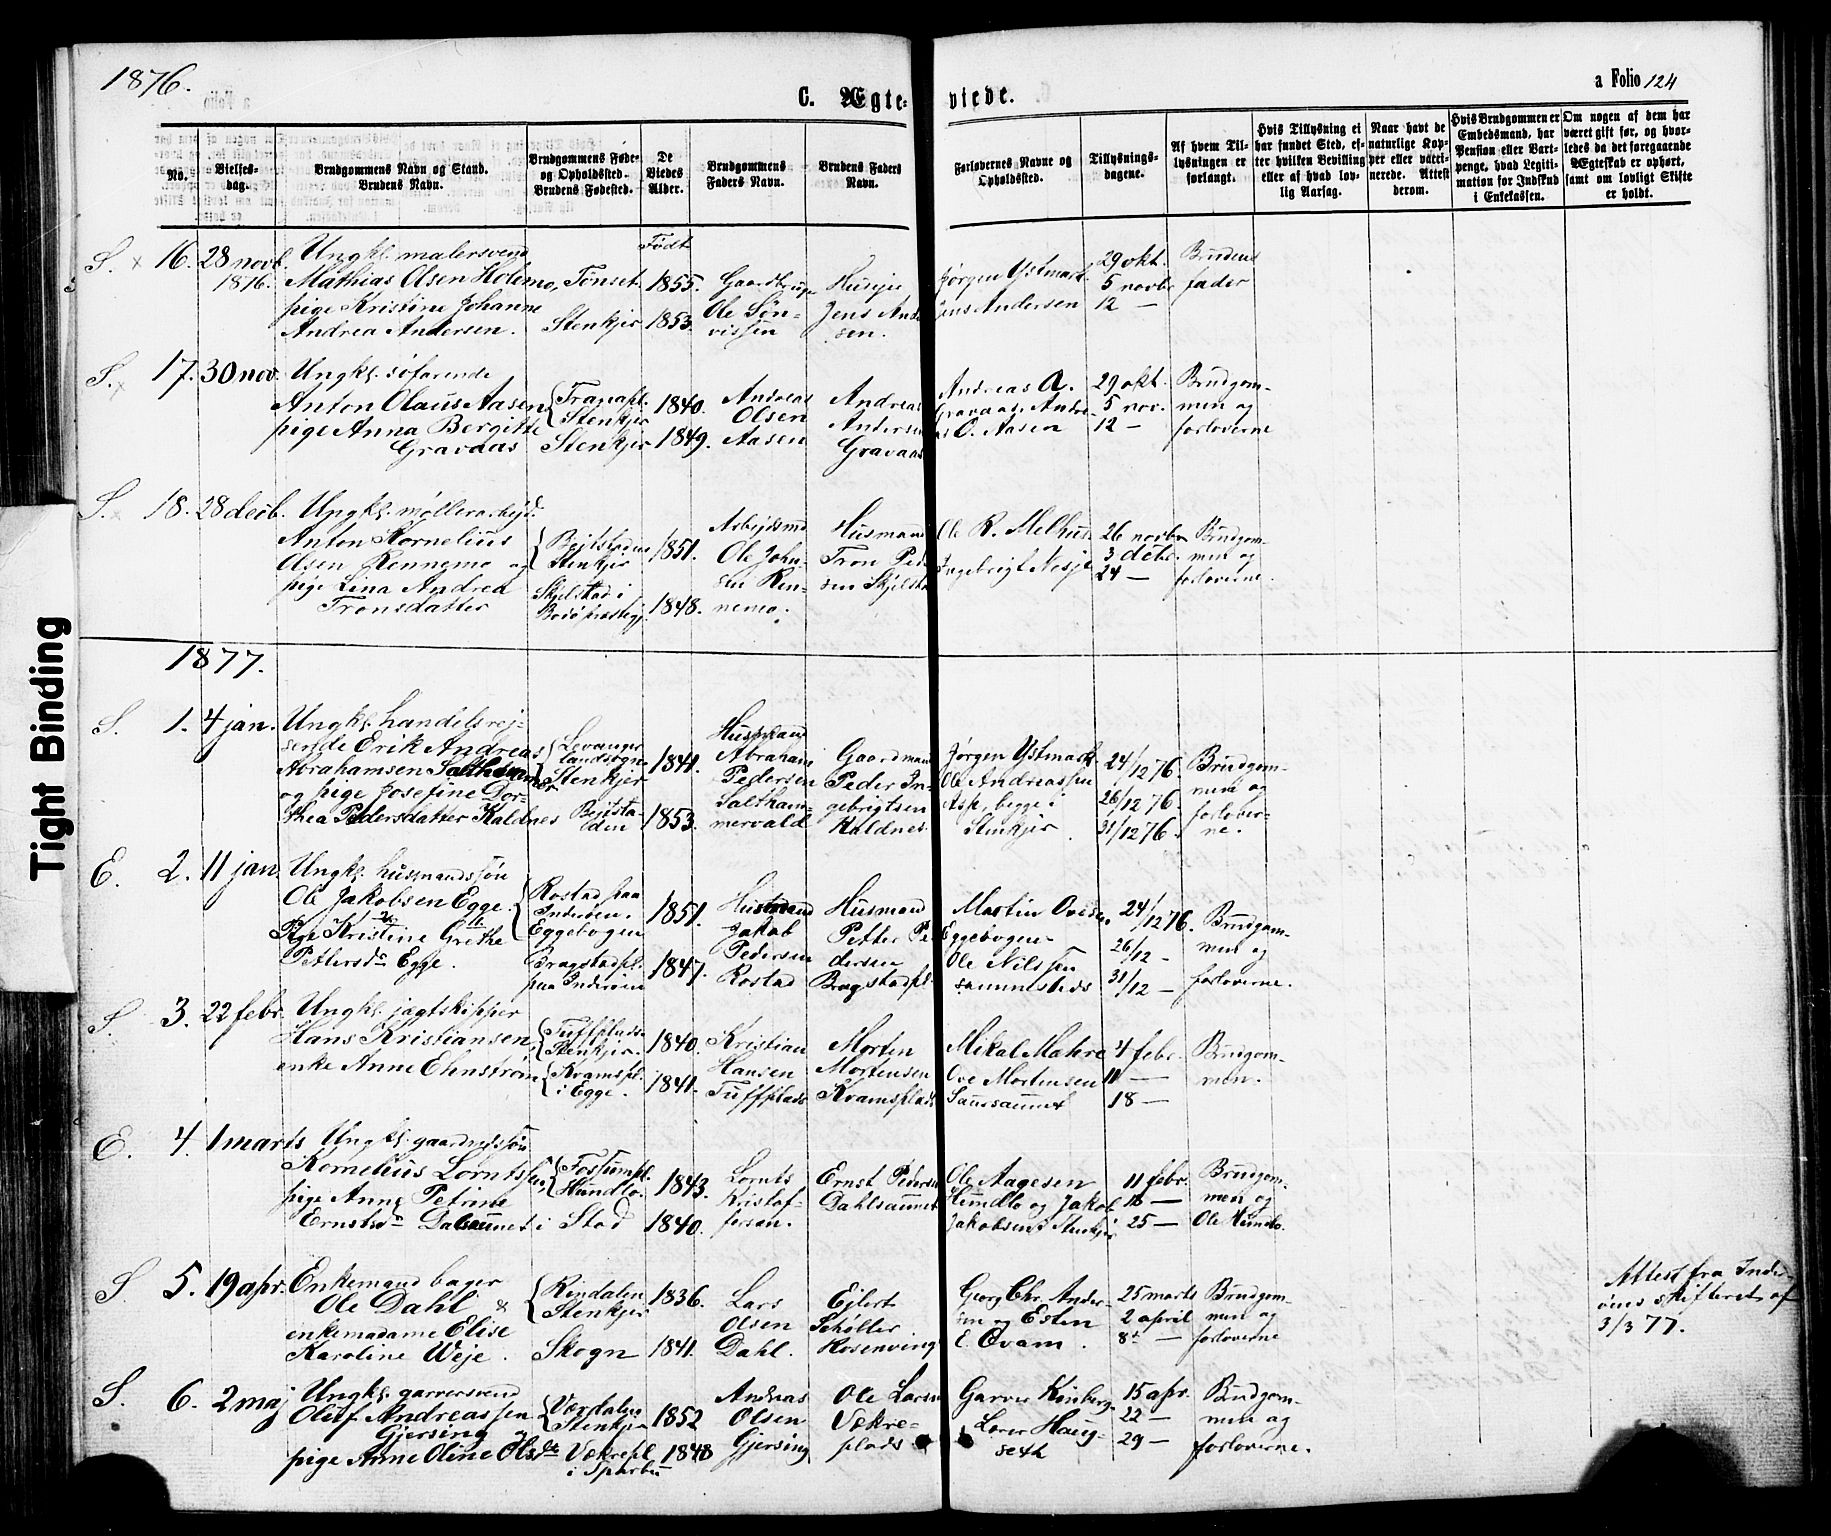 1876.
C. Ægte-
viede.
a Folio 124
No.
Vielses-
dag.
Brudgommens Navn og Stand.
Brudens Navn.
Brudgommens Føde-
og Opholdssted.
Brudens Fødested.
De
Viedes
Alder.
Brudgommens
Faders Navn.
Brudens Faders
Navn.
Forlovernes Navne og
Opholdssted.
Tillysnings-
dagene.
Af hvem Til-
lysningen er
forlangt.
Hvis Tillysning ei
har fundet Sted, ef-
ter hvilken Bevilling
eller af hvad lov-
lig Aarsag.
Naar havt de
naturlige Kop-
per eller vacci-
nerede. Attest
derom.
Hvis Brudgommen er
Embedsmand, har
Pension eller Vart-
penge, hvad Legiti-
mation for Indskud
i Enkekassen.
Om nogen af dem har
været gift før, og hvor-
ledes da det foregaaende
Ægteskab er ophørt,
samt om lovligt Skifte
er holdt.
S. x 16. 28 novb.
1876.
Ungkl. malersvend
Mathias Olsen Holemo,
pige Kristine Johanne
Andrea Andersen.
Tønset.
Stenkjer
Født
1855.
1853.
Gaardbruger
Ole Søn-
vissen
Huseje
Jens Ande
sen.
Jørgen Ystmark.
Jens Andersen
29 okt.
5 novbr
12 —
Brudens
fader
S. x 17. 30 nov.
Ungkl. søfarende
Anton Olaus Aasen
pige Anna Bergitte
Gravaas
Tranapl.
Stenkjer
Stenkjer
1840.
1849.
Andreas
Olsen
Aasen
Andreas
Andersen
Gravaas
Andreas A.
Gravaas, Andre-
as O. Aasen
29 okt.
5 nov.
12 —
Brudgom-
men og
forloverne
S. x 18. 28 decb.
Ungkl. møllerarbejd.
Anton Kornelius
Olsen Rennemo og
pige Lina Andrea
Tronsdatter
Bejtstaden
Stenkjer
Skjelstad i
Bodø præstegj.
1851.
1848.
Arbejdsmd
Ole John-
sen Ren-
nemo.
Husmand
Tron Pede
sen Skjelsta
Ole R. Melhus
Ingebrigt Nesje
26 novbr
3 decbr.
24 —
Brudgom-
men og
forloverne.
1877.
S. 1. 4 jan.
Ungkl. handelsrej-
sende Erik Andreas
Abrahamsen Salthammer
og pige Josefine Dor-
thea Pedersdatter Kaldnes
Levanger
landsogn
Stenkjer
Bejtsta-
den
1841.
1853.
Husmand
Abraham
Pedersen
Saltham-
mervald
Gaardmand
Peder In-
gebrigtsen
Kaldnes
Jørgen Ystmark
Ole Andreassen
Asp, begge i
Stenkjer
24/12 76.
26/12 76.
31/12 76.
Brudgom-
men og
forlover-
ne.
E. 2. 11 jan.
Ungkl. husmandssøn
Ole Jakobsen Egge.
Pige Kristine Grethe
Pettersdr Egge.
Rostad paa
Inderøen.
Eggebogen
Bragstadpl.
paa Inderøen
1851.
1847.
Husmand
Jakob
Pedersen
Rostad
Husmand
Petter Pe
dersen
Bragstadpl
Martin Ovesen
Eggebogen
Ole Nilssen
sammesteds
24/12 76.
26/12 -
31/12 —
Brudgom-
men og
forloverne.
S. 3. 22 febr.
Ungkl. jagtskipper
Hans Kristiansen
enke Anne Ehnstrøm
Tuffplads.
Stenkjer.
Kvamspl.
i Egge.
1840.
1841.
Kristian
Hansen
Tuffplads
Morten
Mortensen
Kvamsplads
Mikal Mahre
Ove Mortensen
4 febr.
11 —
18 —
Brudgom-
men.
E. 4. 1 marts
Ungkl. gaardmdssøn
Kornelius Lorntssen,
pige Anne Petrine
Ernstsdr Dalsaunet i
Fossumpl.
Humdlo.
Stod
1843.
1840.
Lornts
Kristof-
fersen.
Ernst Pedersen
Dahlsaunet
Ole Aagesen
Humdlo og Jakob
Jakobsen Stenkjer
11 febr.
18 —
25 —
Brudgom-
men og
Ole Humdlo.
S. 5. 19 apr.
Enkemand bager
Ole Dahl &
enkemadame Elise
Karoline Weje.
Rindalen
Stenkjer
Skogn
1836.
1841.
Lars
Olsen
Dahl.
Ejlert
Schøller
Rosenvinge
Georg Chr. Ander-
sen og Esten
E. Qvam.
25 marts
2 april
8de —
Brudgom-
men og
forloverne
Attest fra Inder-
øens skifteret af
3/3 77.
S. 6. 2 maj
Ungkl. garversvend
Oluf Andreassen
Gjersing &
pige Anne Oline Olsdr
Værdalen
Stenkjer
Vekrepl
i Sparbu
1852
1848
Andreas
Olsen
Gjersing
Ole Larsen
Vekre-
plads
Garver Kinberg.
Lorer Haug-
seth
15 apr.
22 —
29 —
Brudgom-
men og
forloverne.
Tight Binding